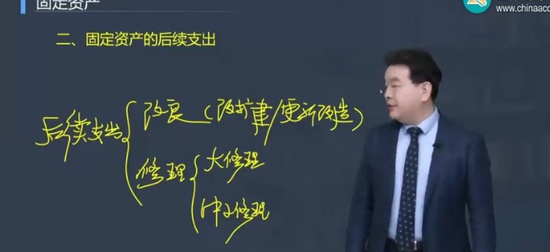 固定资产
www.chinaacc
二、固定资产的后续支出
后续支出 改良(改扩建/更新改造)
修理 大修理
中小修理